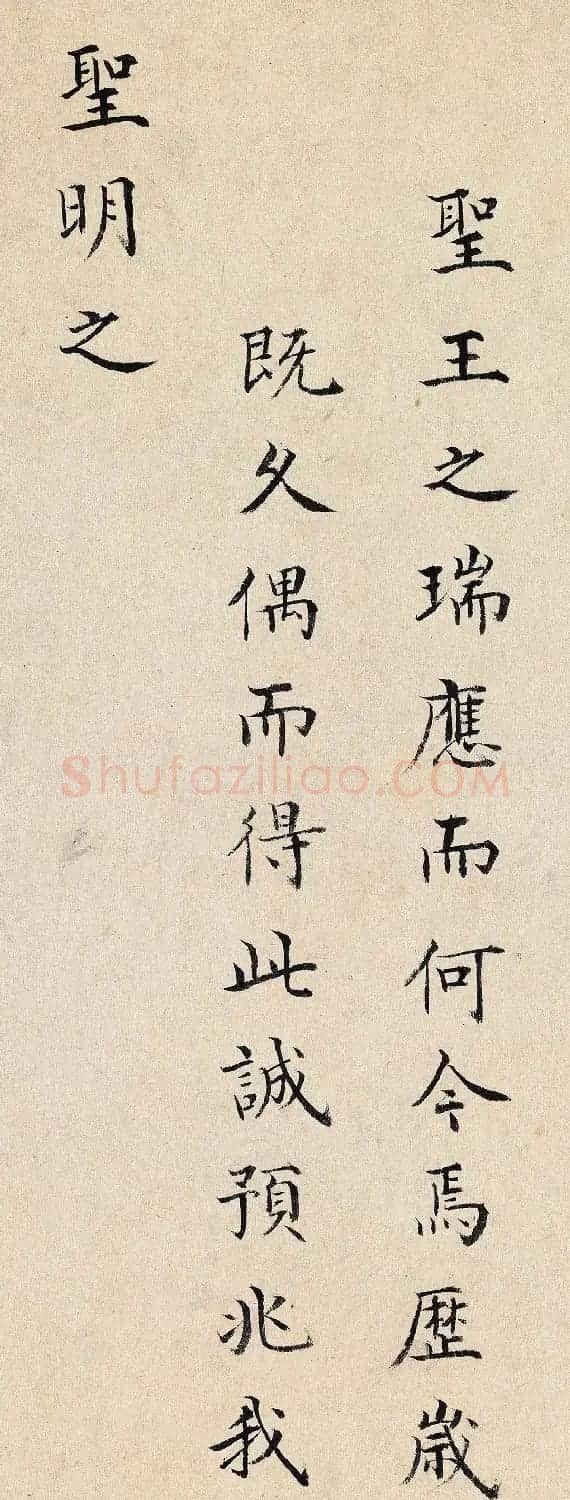 聖王之瑞應而何今焉歷歲
既久偶而得此誠預兆我
聖明之
Shufaziliao.COM